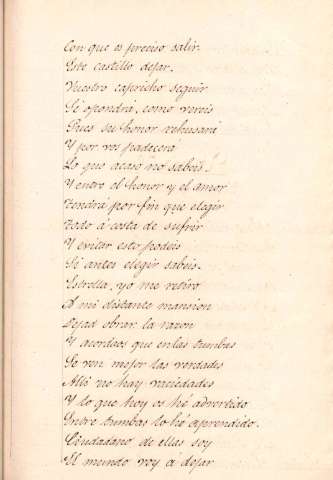 Con que es preciso salir.
Este castillo dejar.
Vuestro capricho seguir
Sé opondrá, como vereis
Pues su honor rehusará
Y por vos padecerá
Lo que acaso no sabeis!
Y entre el honor y el amor
Tendrá por fin que elegir
Todo á costa de sufrir
Y evitar esto podeis
Si antes elegir sabeis.
Estrella, yo me retiro
A mi distante mansion
Dejad obrar la razon
Y acordaos que en las tumbas
Se ven mejor las verdades
Allí no hay variedades
Y lo que hoy os hé advertido
Entre tumbas lo hé aprendido.
Ciudadano de ellas soy
El mundo voy á dejar